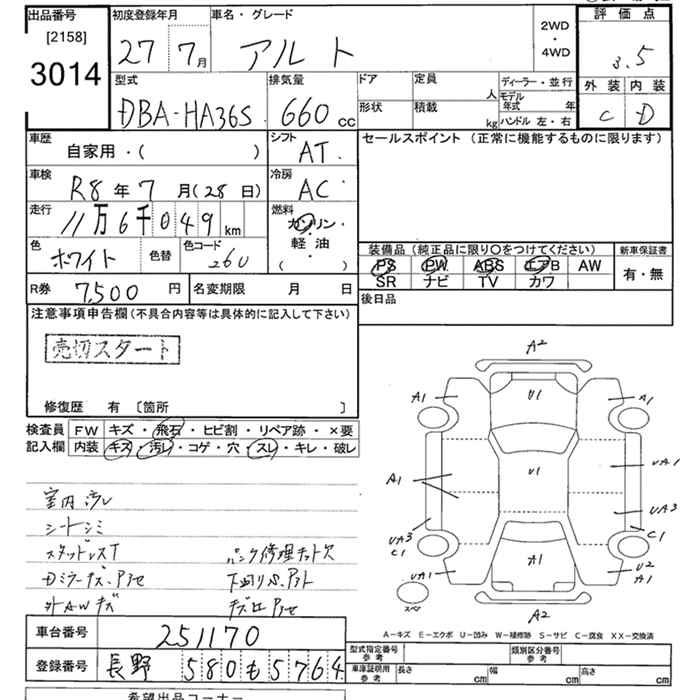 出品番号
[2158]
3014
初度登録年月
27 7月
車名・グレード
アルト
2WD
・
4WD
評価点
3.5
外装 内装
C D
型式
DBA-HA36S
排気量
660 cc
ドア 定員 人
形状 積載 kg
ディーラー・並行
モデル年式 年
ハンドル 左・右
車歴
自家用・( )
シフト
AT
セールスポイント (正常に機能するものに限ります)
車検
R8年7月(28日)
冷房
AC
走行
11万6千049km
燃料
ガソリン・
軽油・
( )
色
ホワイト
色替
色コード
26U
装備品 (純正品に限り○をつけてください)
新車保証書
PS PW ABS エアB AW
有・無
SR ナビ TV カワ
R券 7,500 円
名変期限 月 日
後日品
注意事項申告欄(不具合内容等は具体的に記入して下さい)
売切スタート
修復歴 有 〔箇所 〕
検査員
記入欄
FW キズ・飛石・ヒビ割・リペア跡・×要
内装 キズ・汚レ・コゲ・穴・スレ・キレ・破レ
室内汚レ
シートシミ
スタッドレスT
Dミラーキズ、アセ
外AWキズ
パンク修理キット欠
下廻りS、アト
キズ凹アセ
A2
A1
U1
A1
A1
U1
UA1
UA3
C1
UA3
C1
UA1
A1
U2
A1
スペ
A2
A-キズ E-エクボ U-凹み W-補修跡 S-サビ C-腐食 XX-交換済
車台番号 251170
登録番号 長野 580も5764
型式指定番号
参考
類別区分番号
参考
車庫証明用
参考
長さ cm 幅 cm 高さ cm
希望出品コーナー